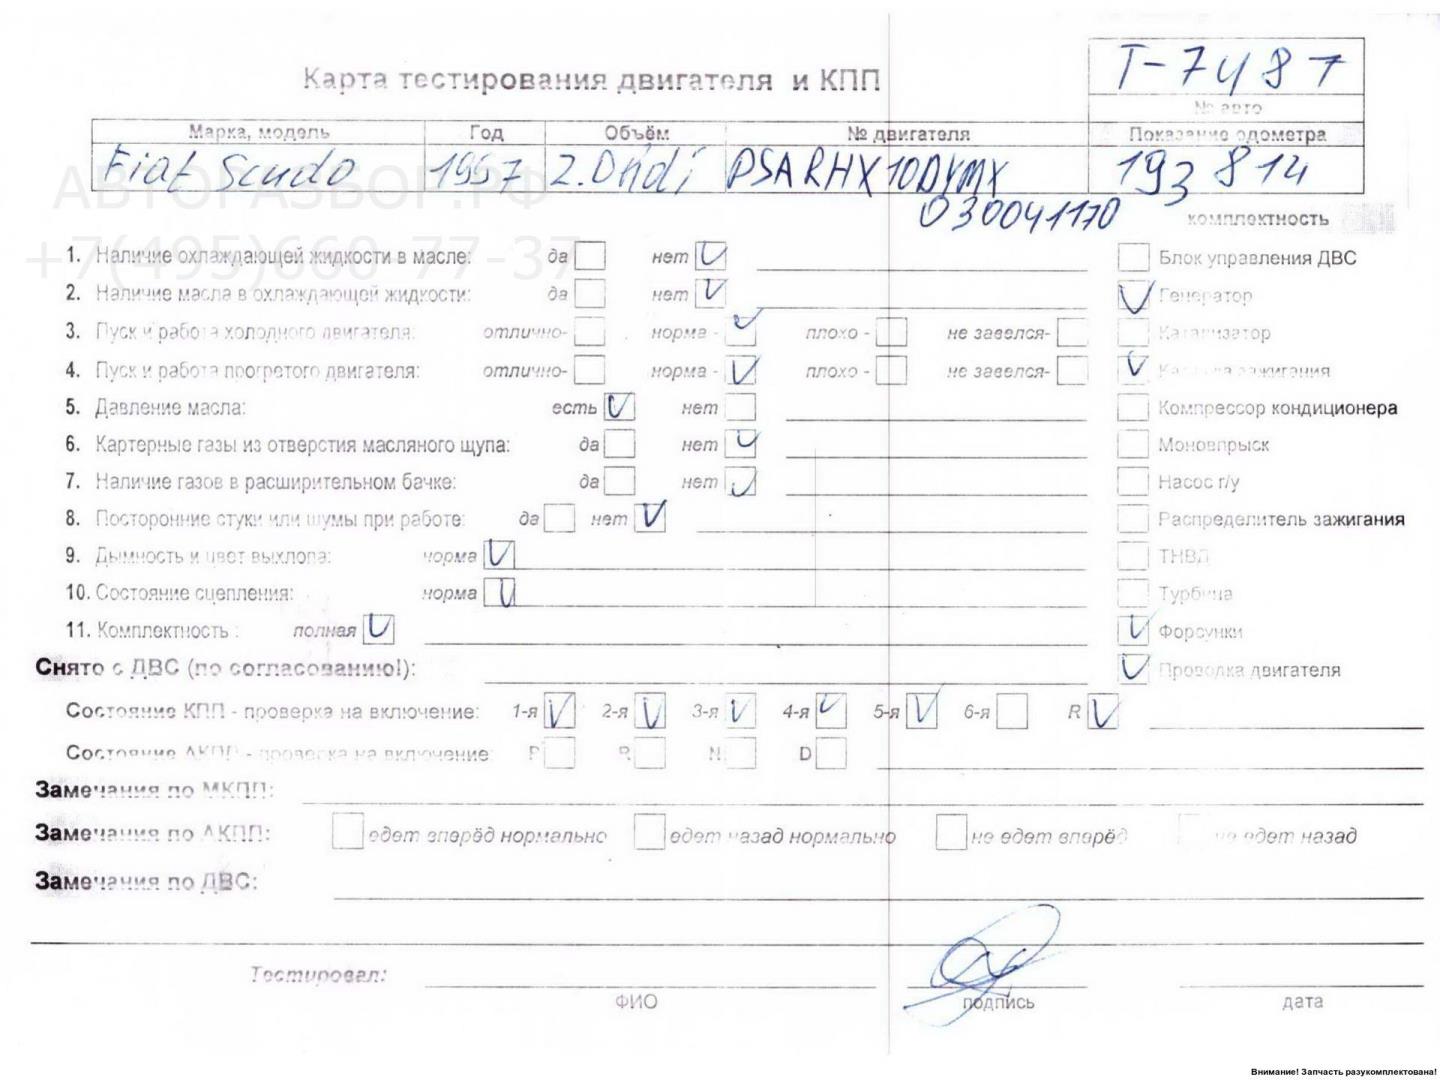 Карта тестирования двигателя и КПП
T-7487
№ авто
Марка, модель Год Объём № двигателя Показание одометра
Fiat Scudo 1997 2.0hdi PSA RHX 10DYMX 193 814
030041170
АВТОРАЗБОР.РФ
+7(495)660-77-37
комплектность
1. Наличие охлаждающей жидкости в масле: да нет Блок управления ДВС
2. Наличие масла в охлаждающей жидкости: да нет Генератор
3. Пуск и работа холодного двигателя: отлично- норма - плохо - не завелся- Катализатор
4. Пуск и работа прогретого двигателя: отлично- норма - плохо - не завелся- Катушка зажигания
5. Давление масла: есть нет Компрессор кондиционера
6. Картерные газы из отверстия масляного щупа: да нет Моновпрыск
7. Наличие газов в расширительном бачке: да нет Насос г/у
8. Посторонние стуки или шумы при работе: да нет Распределитель зажигания
9. Дымность и цвет выхлопа: норма ТНВД
10. Состояние сцепления: норма Турбина
11. Комплектность : полная Форсунки
Снято с ДВС (по согласованию!): Проводка двигателя
Состояние КПП - проверка на включение: 1-я 2-я 3-я 4-я 5-я 6-я R
Состояние АКПП - проверка на включение: P R N D
Замечания по МКПП:
Замечания по АКПП: едет вперёд нормально едет назад нормально не едет вперёд не едет назад
Замечания по ДВС:
Тестировал:
ФИО подпись дата
Внимание! Запчасть разукомплектована!